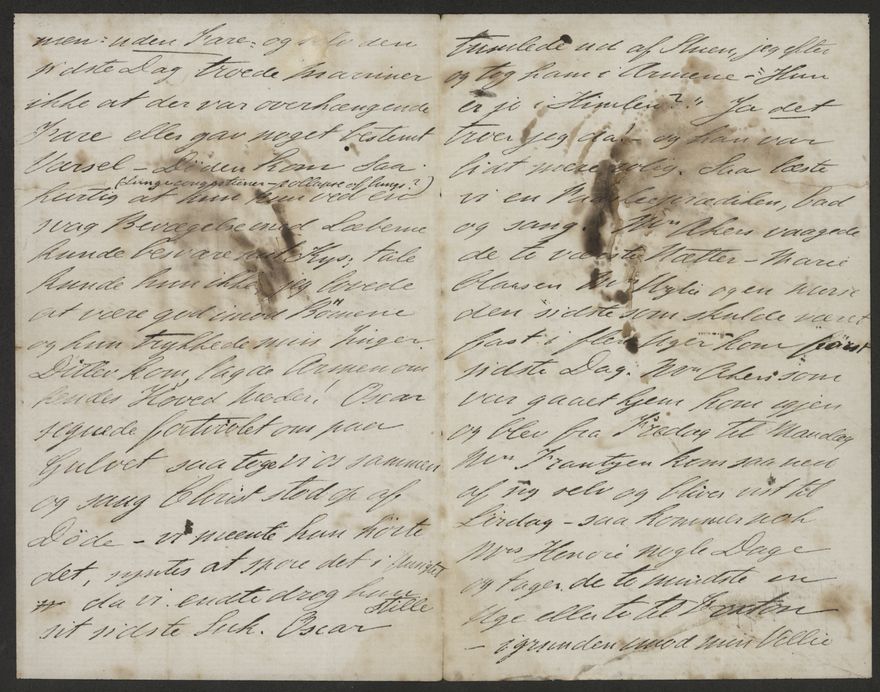 men: uden Fare: og selv den
sidste Dag troede han ikke
ikke at der var overhængende
Fare eller gav noget bestemt
Varsel – Døden kom saa
(Lungecongestioner – collapse of lungs?)
hurtig at hun kun ved en
svag Bevægelse med Læberne
kunde besvare mit Kys; tale
kunde hun ikke jeg lovede
at være god imod Børnene
og hun trykkede min Finger
Ditlev kom, lagde Armen om
hendes Hoved neder! Oscar
segnede fortvivlet om paa
Gulvet saa toge vi os sammen
og sang Christ stod op af
Døde – vi meente hun hørte
det, syntes at spore det i
da vi endte drog hun stille
sit sidste Suk. Oscar
tumlede ud af Stuen, jeg efter
og tog ham i Armene – "Hun
er jo i Himlen?" Ja det
troer jeg da! – og han var
lidt mere rolig. Saa læste
vi en prædiken, bad
og sang. Mrs Akers vaagede
de to værste Nætter – Marie
Olausen Mrs Wylie og en
den sidste som skulde været
fast i flere Uger kom først
sidste Dag. Mrs Akers som
var gaaet hjem kom igjen
og blev fra Fredag til Mandag
Mrs Frantzen kom saa ned
af sig selv og bliver vist til
Lørdag – saa kommer nok
Mrs Honoré nogle Dage
og tager de to mindste en
Uge eller to til
– igrunden imod min Villie